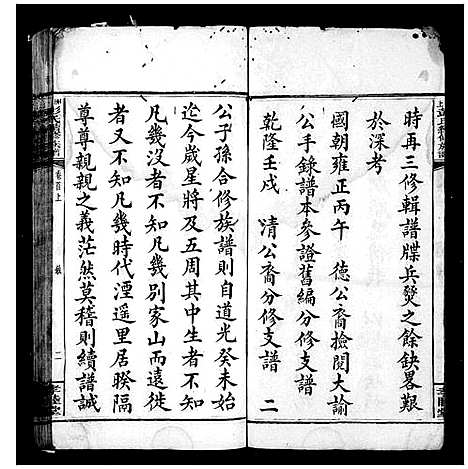 時再三修輯譜牒兵燹之餘缺畧艱
於深考
國朝雍正丙午　德公裔撿閱大諭
公手錄譜本參證舊編分修支譜
乾隆壬戌　清公裔分修支譜　二
公子孫合修族譜則自道光癸未始
迄今歲星將及五周其中生者不知
凡幾歿者不知凡幾別家山而遠徙
者又不知凡幾時代湮遥里居暌隔
尊尊親親之義茫然莫稽則續譜誠
卷首上
二